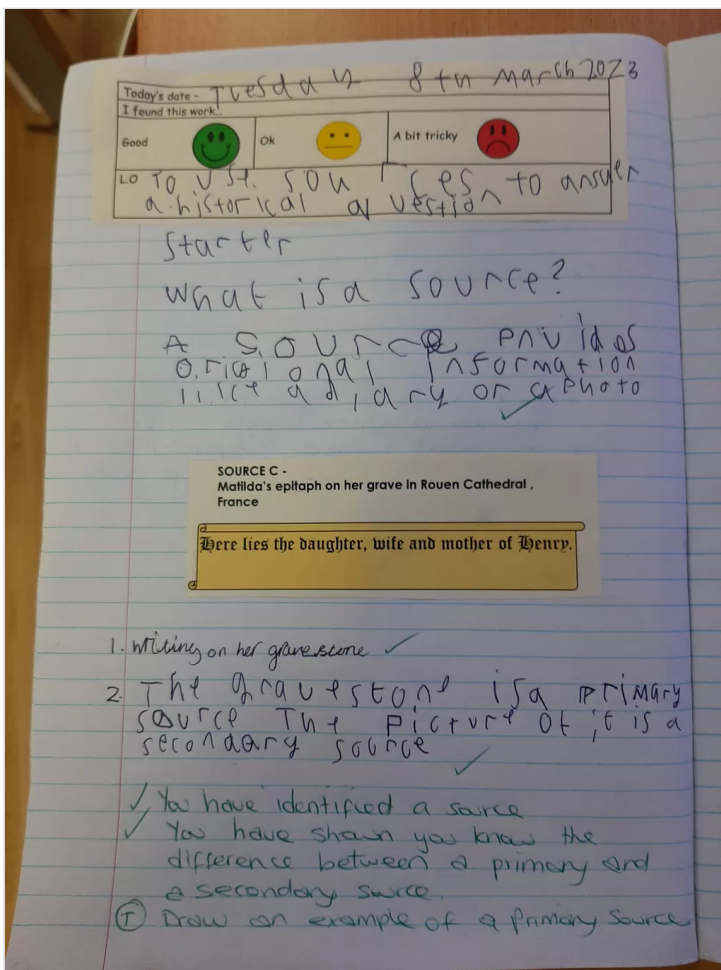 Today's date - Tuesday 8th March 2023
I found this work..
Good Ok A bit tricky
LO To use sources to answer
a historical question
Starter
What is a source?
A source pruvides
origional information
like a diary or a photo
SOURCE C -
Matilda's epitaph on her grave in Rouen Cathedral ,
France
Here lies the daughter, wife and mother of Henry.
1. Writing on her gravestone
2. The gravestone is a primary
source The picture of it is a
secondary source
You have identified a source
You have shown you know the
difference between a primary and
a secondary source.
T Draw an example of a primary source